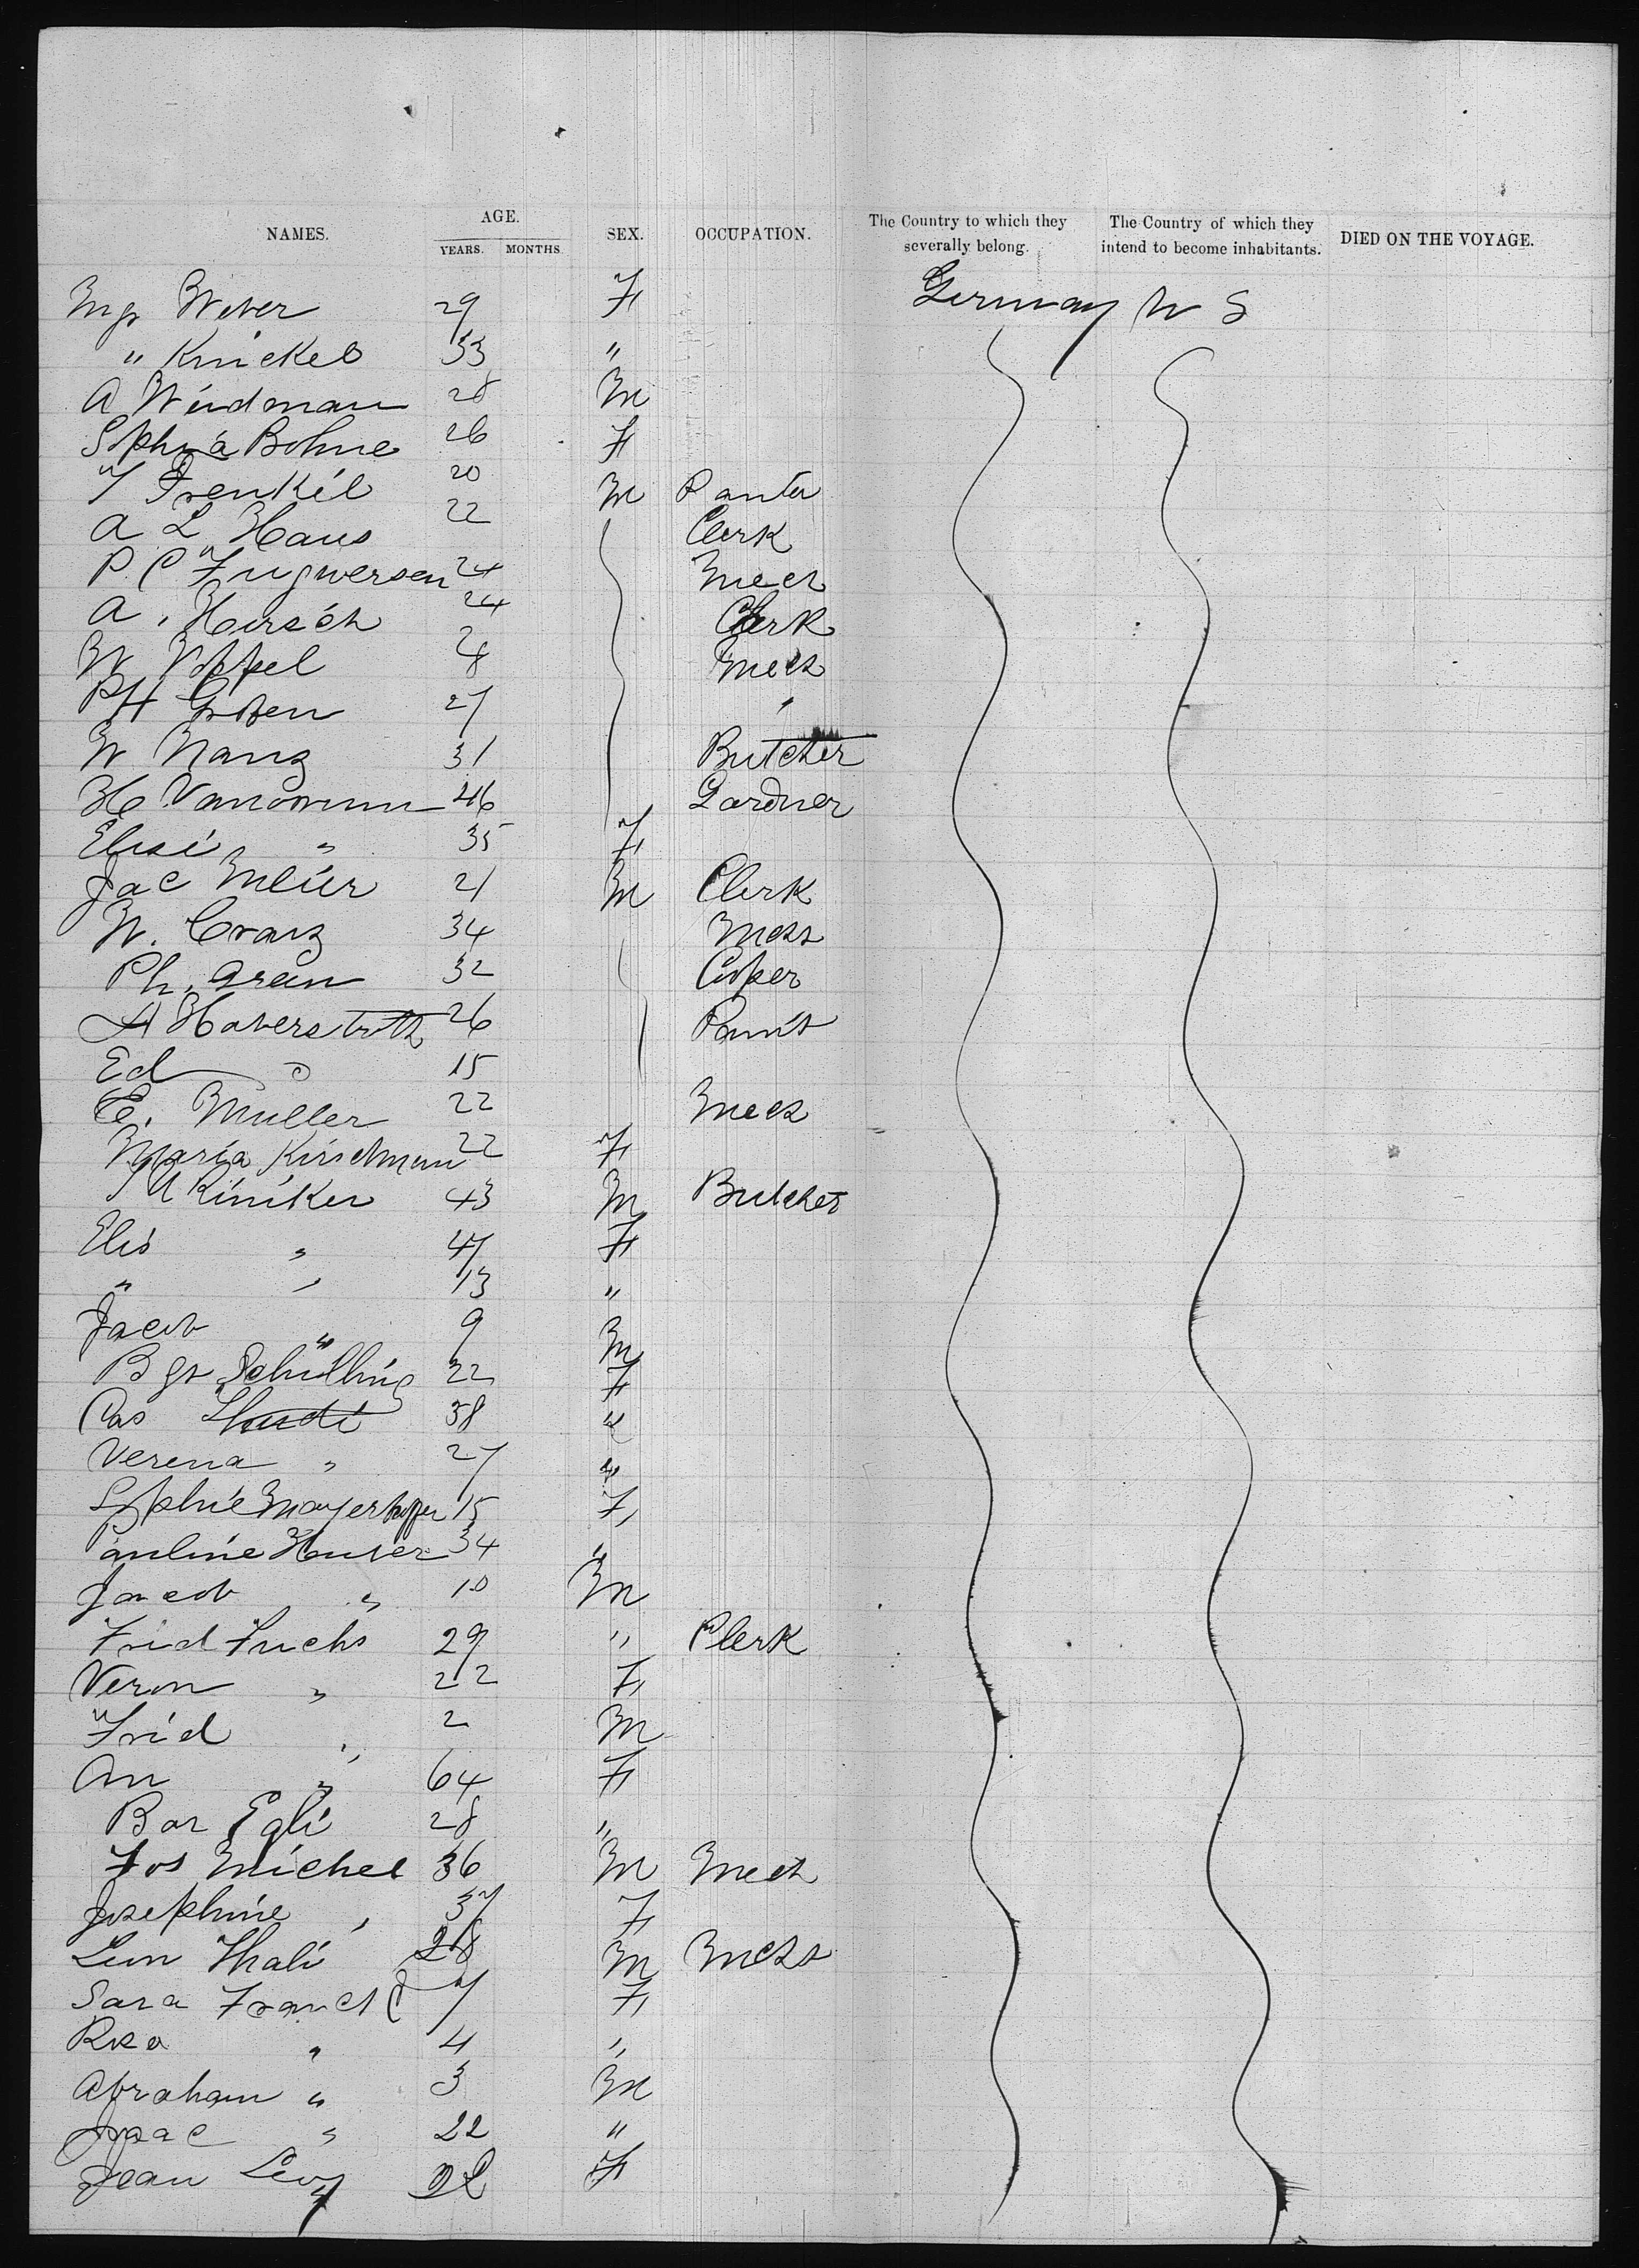 NAMES. AGE. YEARS. MONTHS. SEX. OCCUPATION. The Country to which they severally belong. The Country of which they intend to become inhabitants. DIED ON THE VOYAGE.
Mgr Weber 29 F Germany U S
" Knickel 33 "
A Weidman 28 M
Sophia Bohne 26 F
F Frenkel 20 M
A L Haus 22 Clerk
P. C Ingwersen 24 Mech
A. Hirsch 24 Clerk
W Voppel 28 Mech
PH Groten 27 "
W Nanz 31 Butcher
H Vanormum 46 Gardner
Elise " 35 F
Jac Meier 21 M Clerk
W. Cranz 34 Mess
Ph. Grein 32 Coper
A Haverstroth 26
Ed " 15
E. Muller 22 Mech
Maria Kirschman 22 F
Riniker 43 M Butcher
Elis " 47 F
" " 13 "
Jacob " 9 M
Bgt Schilling 22 F
Cas Thudi 38 "
Verena " 27 "
Sophie Mayerhoffer 15 F
Pauline Huber 34 "
Jacob " 10 M
Frid Fuchs 29 " Clerk
Veron " 22 F
Frid " 2 M
An " 64 F
Bar Egli 28 "
Jos Michel 36 M Mech
Josephine " 37 F
Leon Thali 28 M Mess
Sara 7 F
Rosa " 4 "
Abraham " 3 M
Isaac " 22 "
Jean Levy 22 F